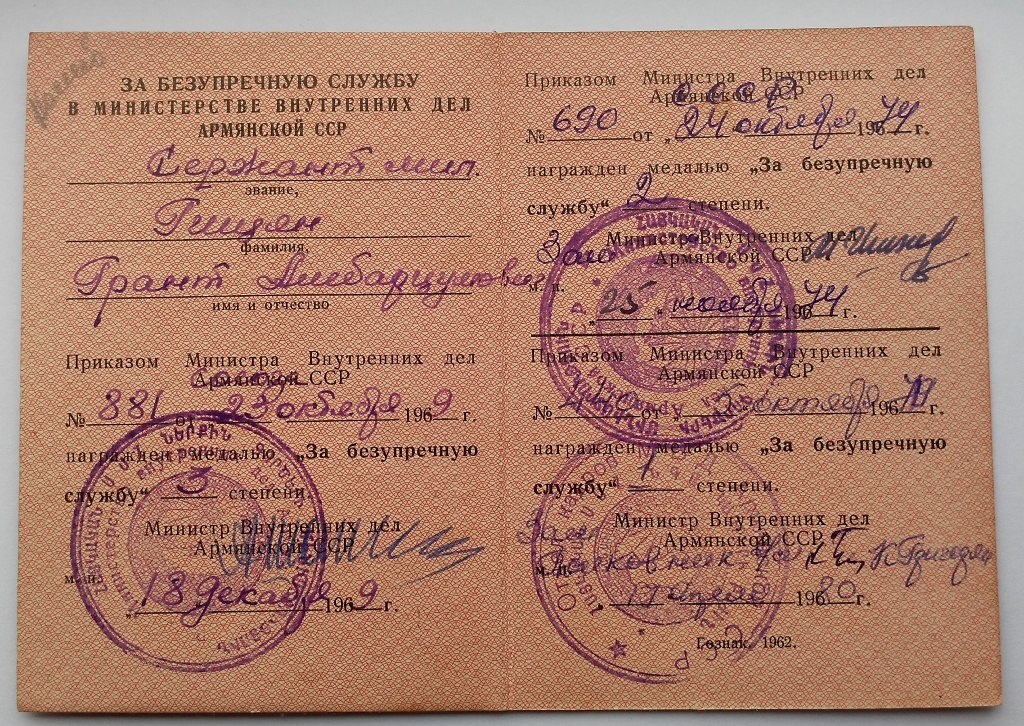 ЗА БЕЗУПРЕЧНУЮ СЛУЖБУ
В МИНИСТЕРСТВЕ ВНУТРЕННИХ ДЕЛ
АРМЯНСКОЙ ССР
Сержант мил.
звание,
фамилия,
Грант
имя и отчество
Приказом Министра Внутренних дел
Армянской ССР
№ 881 от 23 октября 1969 г.
награжден медалью „За безупречную
службу“ 3 степени.
Министр Внутренних дел
Армянской ССР
м. п.
„18 декабря 1969 г.
Приказом Министра Внутренних дел
Армянской ССР
№ 690 от „24 октября 19674 г.
награжден медалью „За безупречную
службу“ 2 степени.
Зам Министр Внутренних дел
Армянской ССР
м. п.
„25 " ноября 19674 г.
Приказом Министра Внутренних дел
Армянской ССР
№ от октября 196 г.
награжден медалью „За безупречную
службу“ 1 степени.
Зам Министр Внутренних дел
Армянской ССР
м. п. Полковник
19680 г.
Гознак. 1962.